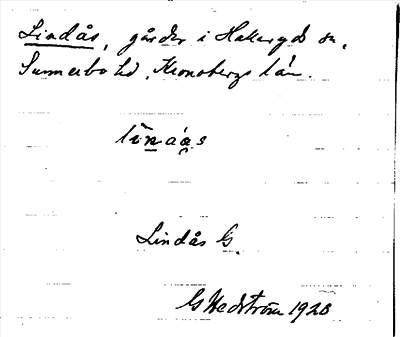 Lindås, gårdar i Hallaryds sn,
Sunnerbo hd, Kronobergs län.
línàas
Lindås G.
G Hedström 1928